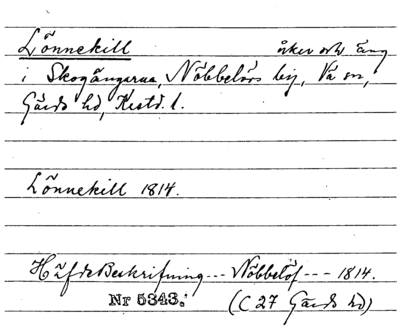 Lönnekill åker och äng
i Skogångarna, Nöbbelövs by, Vä sn,
Gärds hd, Krstd. l.
Lönnekill 1814.
Häfde Beskrifning --- Nöbbelöf --- 1814.
Nr 5343. (C 27 Gärds hd)